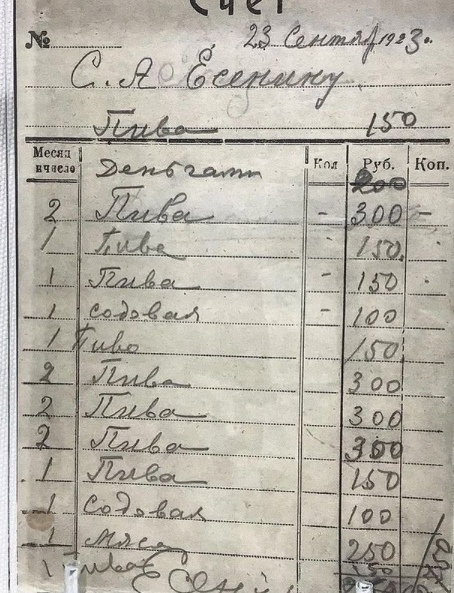 Счет
№ 23 Сентяб 1923 г.
С. А Есенину
Пива 150
Месяц и число Кол Руб. Коп.
Деньгами 200
2 Пива - 300 -
1 Пива 150
1 Пива - 150
1 Содовая - 100
1 Пиво 150
2 Пива 300
2 Пива 300
2 Пива 300
1 Пива 150
1 Содовая 100
1 Мяса 250
1 Пива 150